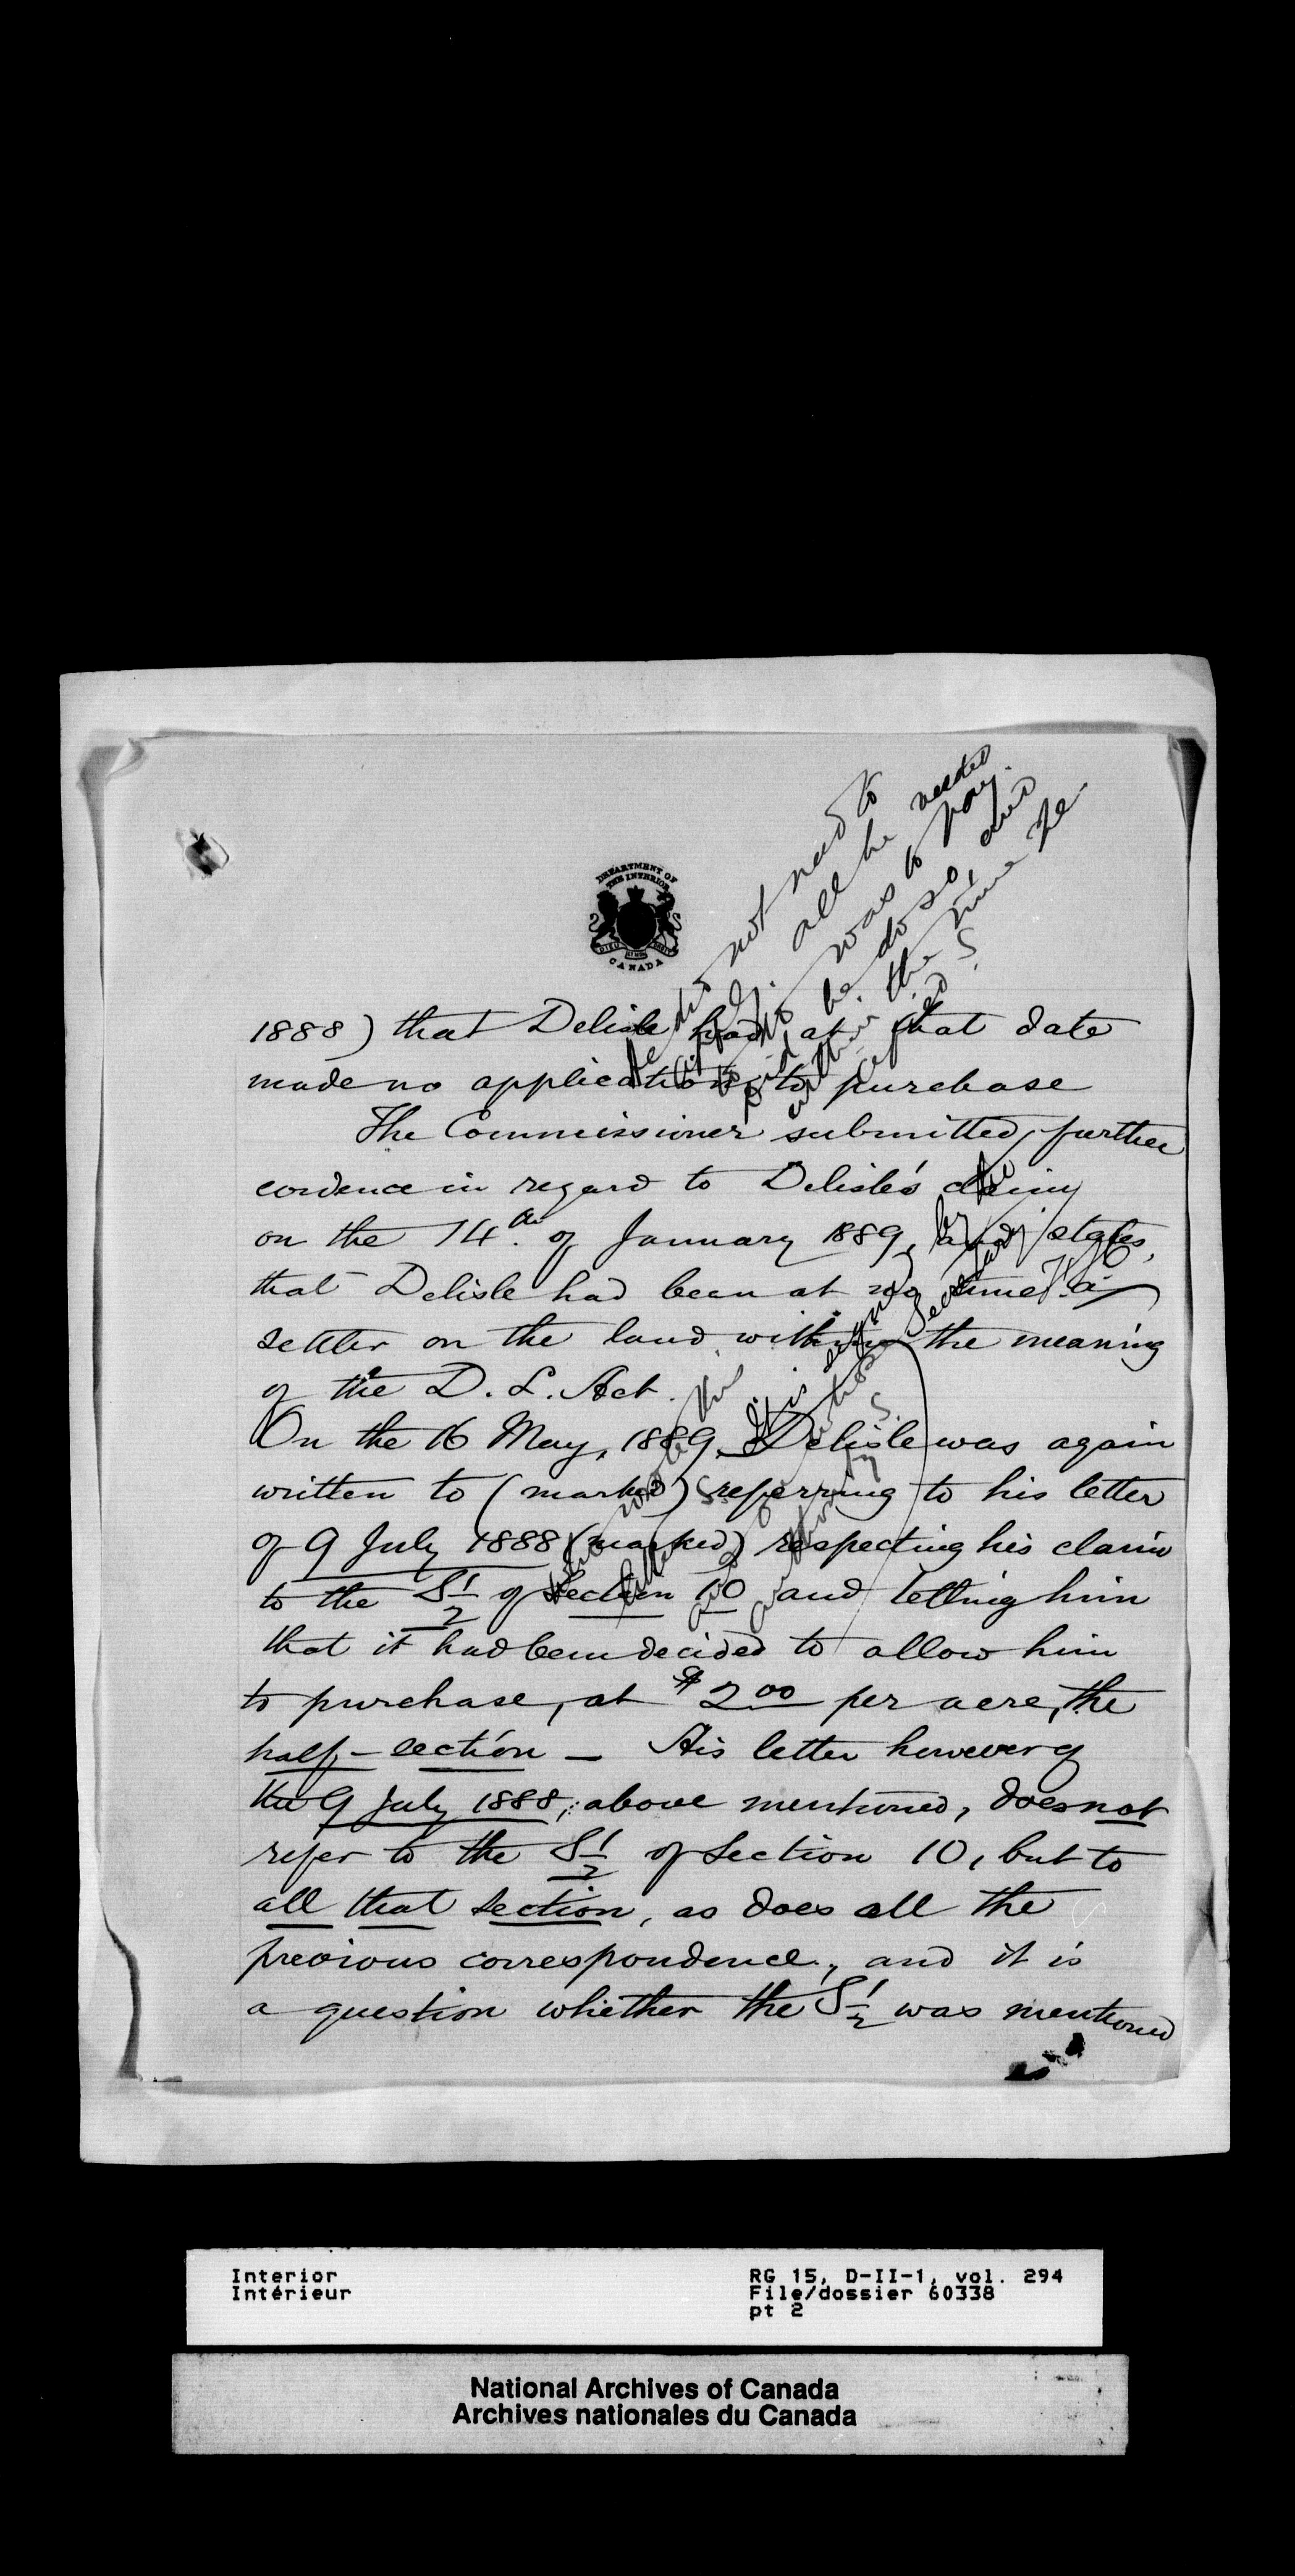 DEPARTMENT OF
THE INTERIOR
CANADA
He did not need to
apply. all he needed
to do was to pay.
Did he do so, and
within the time he
specified?
1888) that Delisle had, at that date
made no application to purchase
The Commissioner submitted further
evidence in regard to Delisle's claim
on the 14th. of January 1889, and states
that Delisle had been at no time a
settler on the land within the meaning
of the D. L. Act.
On the 16 May, 1889, Delisle was again
written to (marked) referring to his letter
of 9 July 1888 (marked) respecting his claim
to the S 1/2 of Section 10 and telling him
that it had been decided to allow him
to purchase, at $2 00 per acre, the
half-section – His letter however of
the 9 July 1888, above mentioned, does not
refer to the S 1/2 of Section 10, but to
all that section, as does all the
previous correspondence, and it is
a question whether the S 1/2 was mentioned
Who wrote this
letter &
what
authority?
It is signed by the
Secretary
Interior
Intérieur
RG 15, D-II-1, vol. 294
File/dossier 60338
pt 2
National Archives of Canada
Archives nationales du Canada